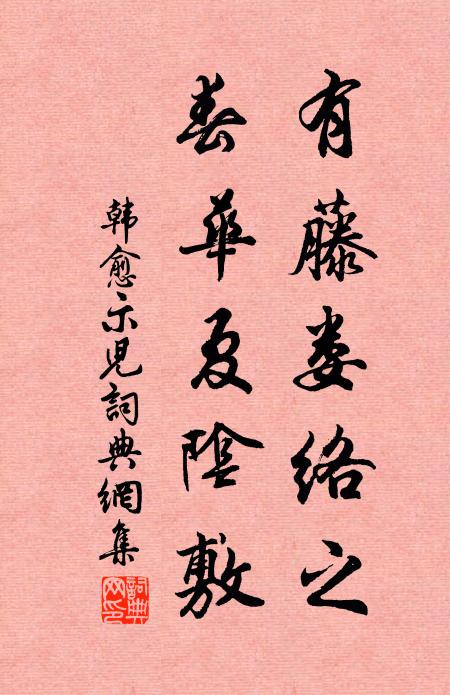 有藤娄络之
春华夏陰敷
韩愈示児詞典網集
詞典网印